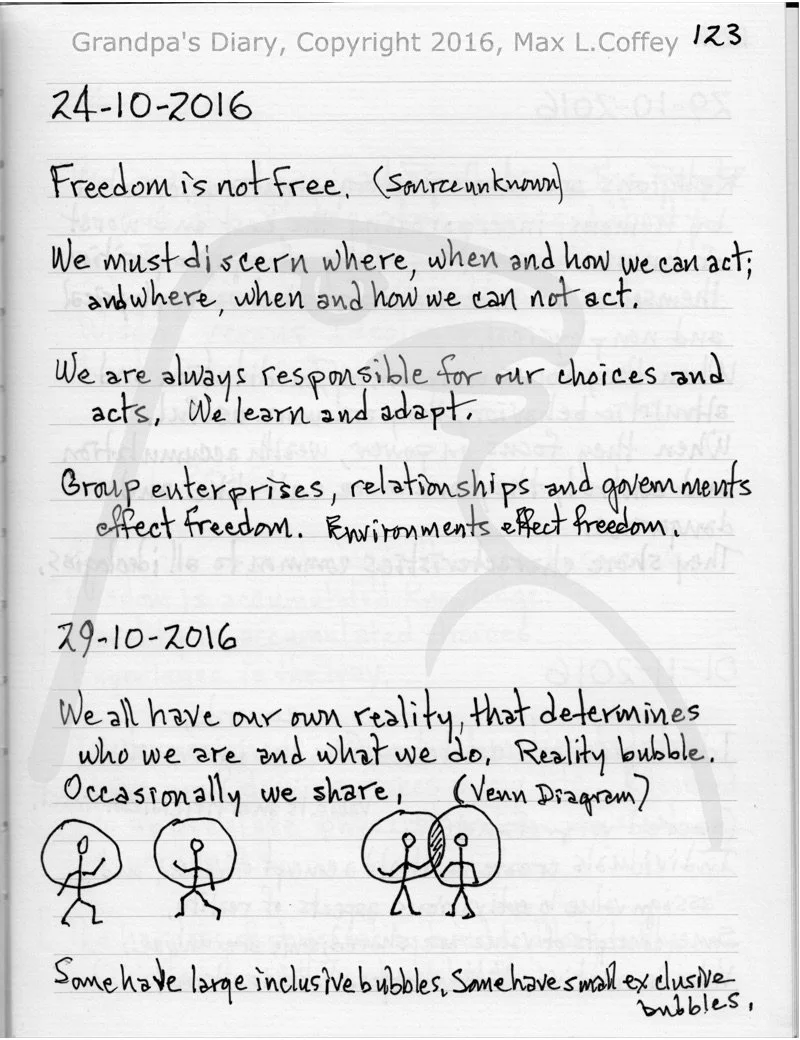 Grandpa's Diary, Copyright 2016, Max L.Coffey 123
24-10-2016
Freedom is not free. (Source unknown)
We must discern where, when and how we can act;
and where, when and how we can not act.
We are always responsible for our choices and
acts. We learn and adapt.
Group enterprises, relationships and governments
effect freedom. Environments effect freedom.
29-10-2016
We all have our own reality, that determines
who we are and what we do. Reality bubble.
Occasionally we share. (Venn Diagram)
Some have large inclusive bubbles. Some have small exclusive
bubbles.